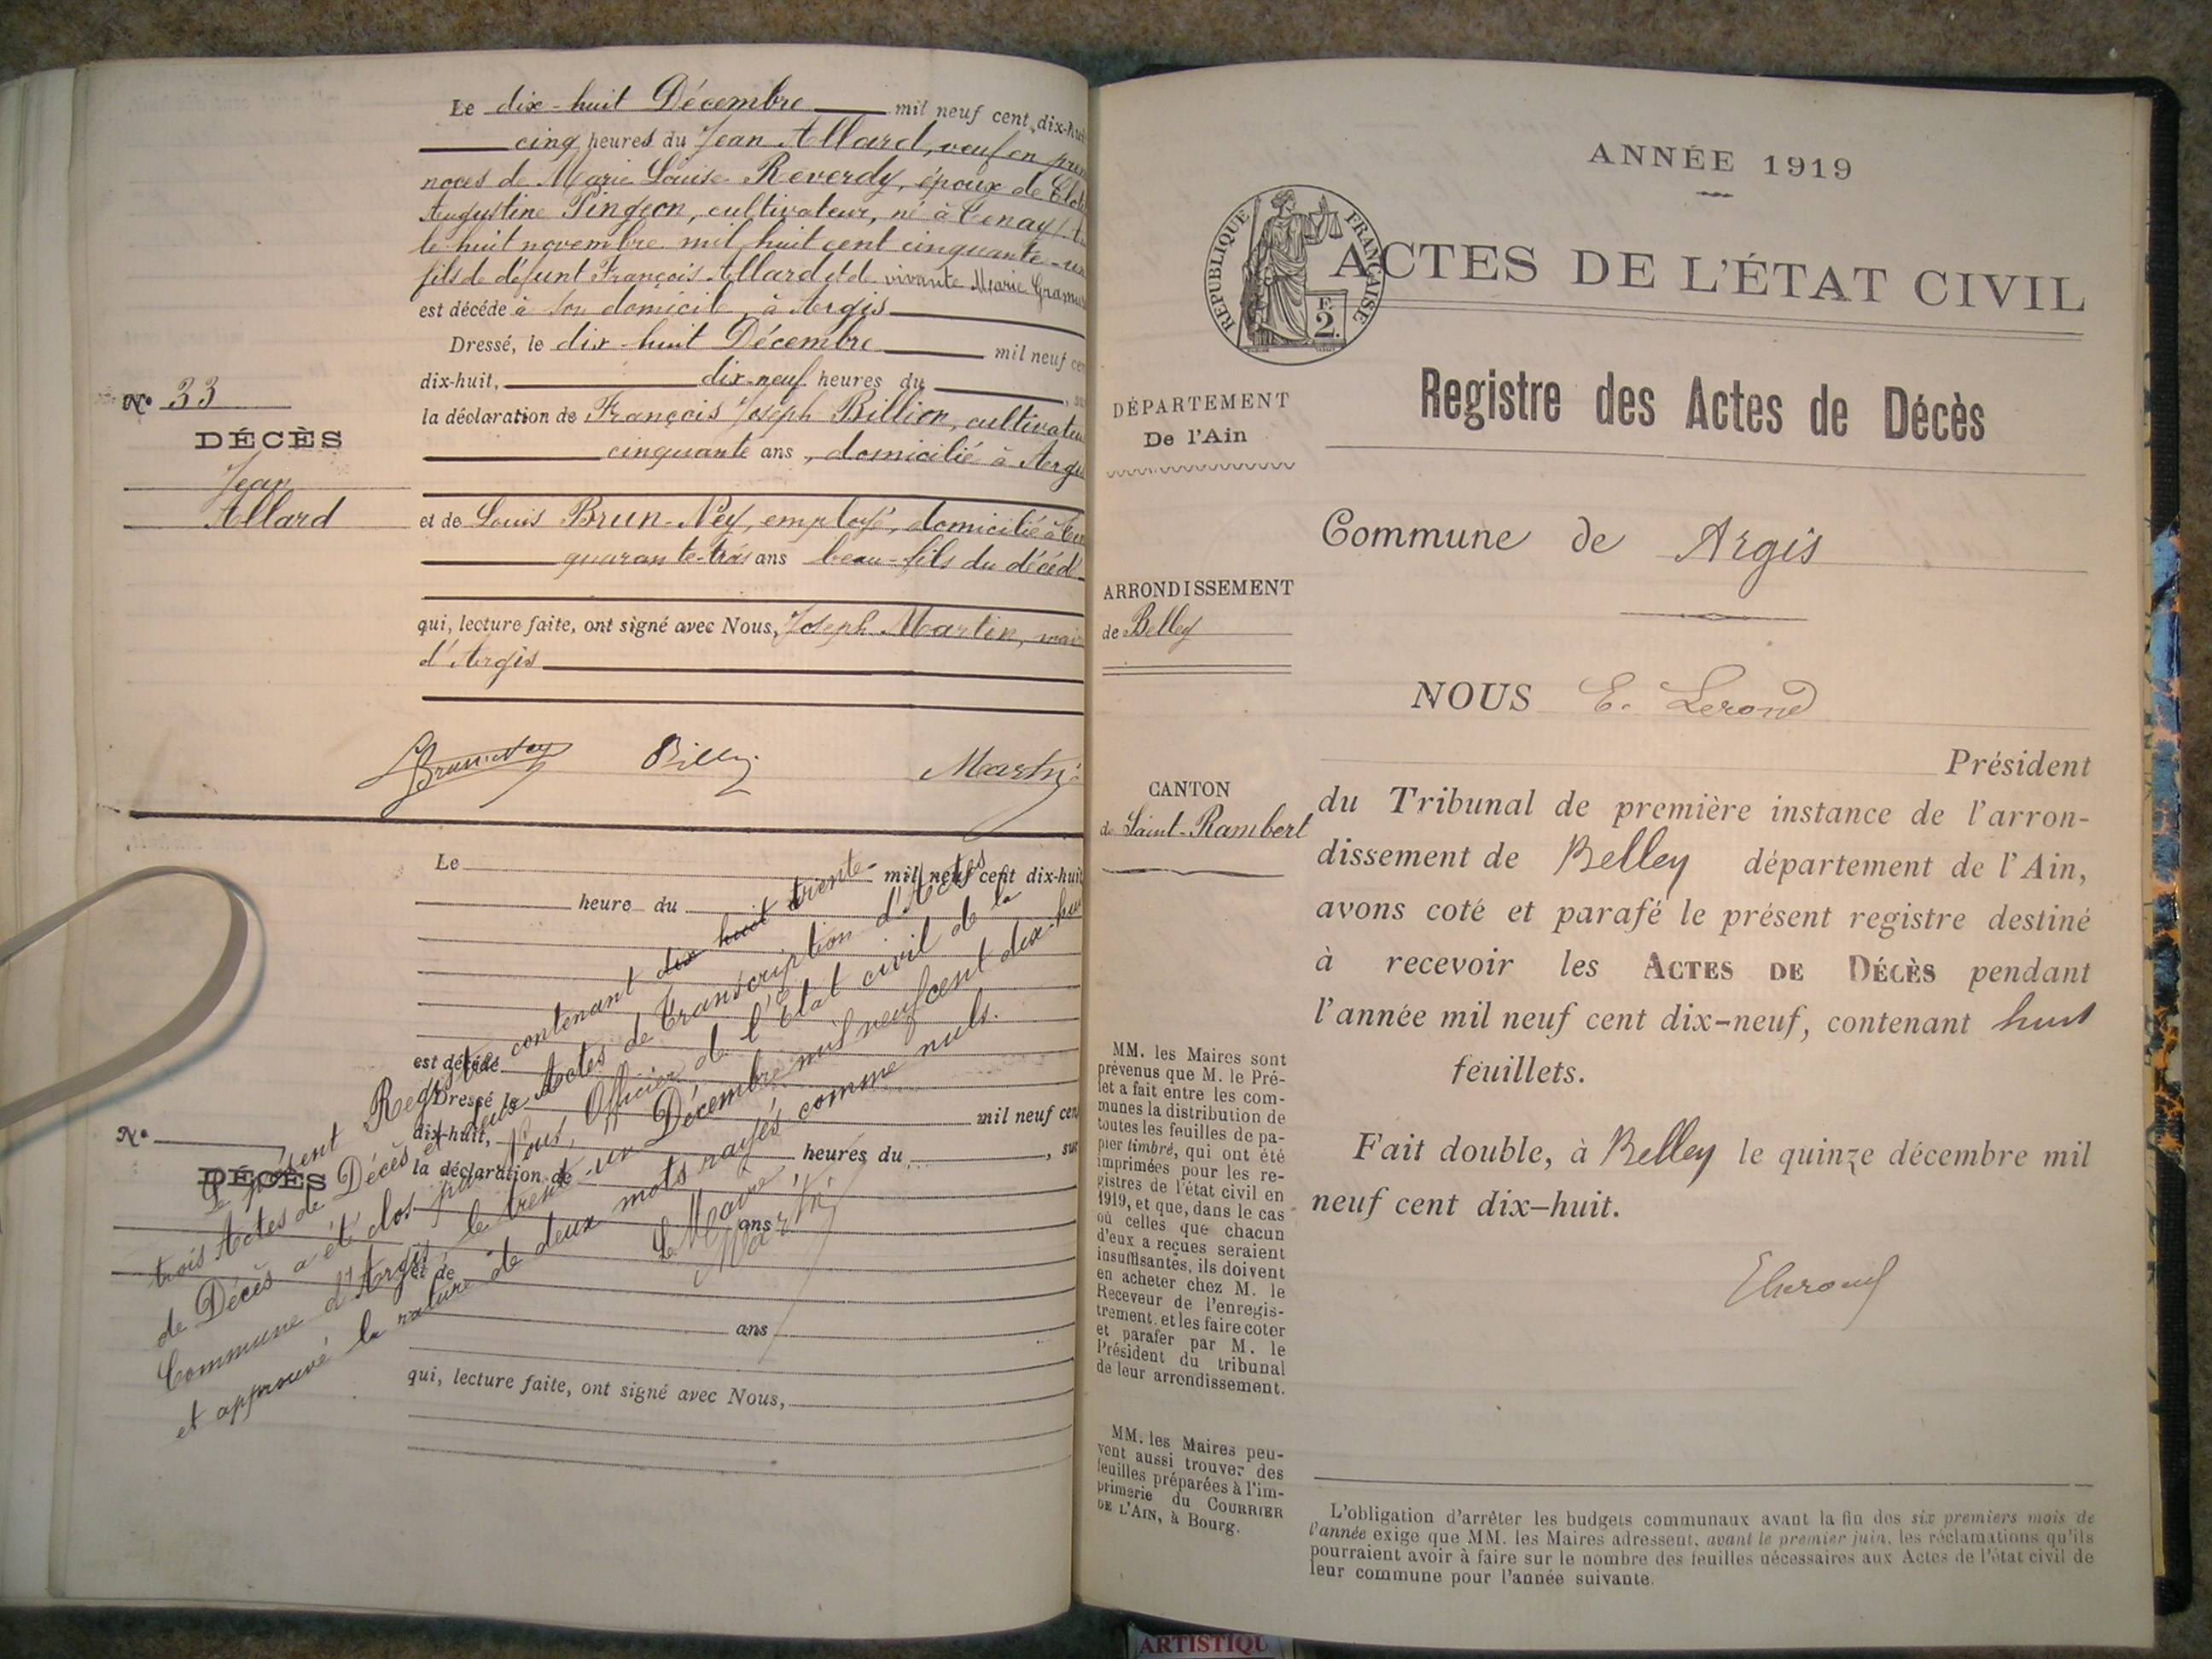 Le dix-huit Décembre mil neuf cent dix-hui
cinq heures du Jean Allard, veuf en prem
noces de Marie Louise Reverdy, époux de Clot
Augustine Pingeon, cultivateur, né à Tenay
le huit novembre mil huit cent cinquante-un
fils de défunt François Allard et de vivante Marie
est décédé à son domicil, à Argis
Dressé, le dix-huit Décembre mil neuf cen
dix-huit, dix-neuf heures du , su
la déclaration de François Joseph Billion, cultivateu
cinquante ans, domicilié à Argis
et de Louis Brun-Ney, employé, domicilié à Ten
quarante-trois ans beau-fils du décéd
qui, lecture faite, ont signé avec Nous, Joseph Martin, mair
d'Argis
N° 33
DÉCÈS
Jean
Allard
Brun-Ney Martin
Le mil neuf cent dix-huit
heure du
est décédé
Dressé le mil neuf cen
dix-huit, heures du , sur
la déclaration de
ans
et de
ans
qui, lecture faite, ont signé avec Nous,
N°
DÉCÈS
Le présent Registre contenant dix huit trente-
trois Actes de Décès et deux Actes de Transcription d'Actes
de Décès a été clos par Nous, Officier de l'Etat civil de la
Commune d'Argis, le trente-un Décembre mil neuf cent dix-huit
et approuvé la rature de deux mots rayés comme nuls.
Le Maire
Martin
ANNÉE 1919
RÉPUBLIQUE FRANÇAISE
F.
2.
ACTES DE L'ÉTAT CIVIL
Registre des Actes de Décès
DÉPARTEMENT
De l'Ain
ARRONDISSEMENT
de Belley
CANTON
de Saint-Rambert
Commune de Argis
NOUS E. Lerond
Président
du Tribunal de première instance de l'arron-
dissement de Belley département de l'Ain,
avons coté et parafé le présent registre destiné
à recevoir les ACTES DE DÉCÈS pendant
l'année mil neuf cent dix-neuf, contenant huit
feuillets.
Fait double, à Belley le quinze décembre mil
neuf cent dix-huit.
MM. les Maires sont
prévenus que M. le Pré-
fet a fait entre les com-
munes la distribution de
toutes les feuilles de pa-
pier timbré, qui ont été
imprimées pour les re-
gistres de l'état civil en
1919, et que, dans le cas
où celles que chacun
d'eux a reçues seraient
insuffisantes, ils doivent
en acheter chez M. le
Receveur de l'enregis-
trement, et les faire coter
et parafer par M. le
Président du tribunal
de leur arrondissement.
MM. les Maires peu-
vent aussi trouver des
feuilles préparées à l'im-
primerie du COURRIER
DE L'AIN, à Bourg.
L'obligation d'arrêter les budgets communaux avant la fin des six premiers mois de
l'année exige que MM. les Maires adressent, avant le premier juin, les réclamations qu'ils
pourraient avoir à faire sur le nombre des feuilles nécessaires aux Actes de l'état civil de
leur commune pour l'année suivante.
ARTISTIQU